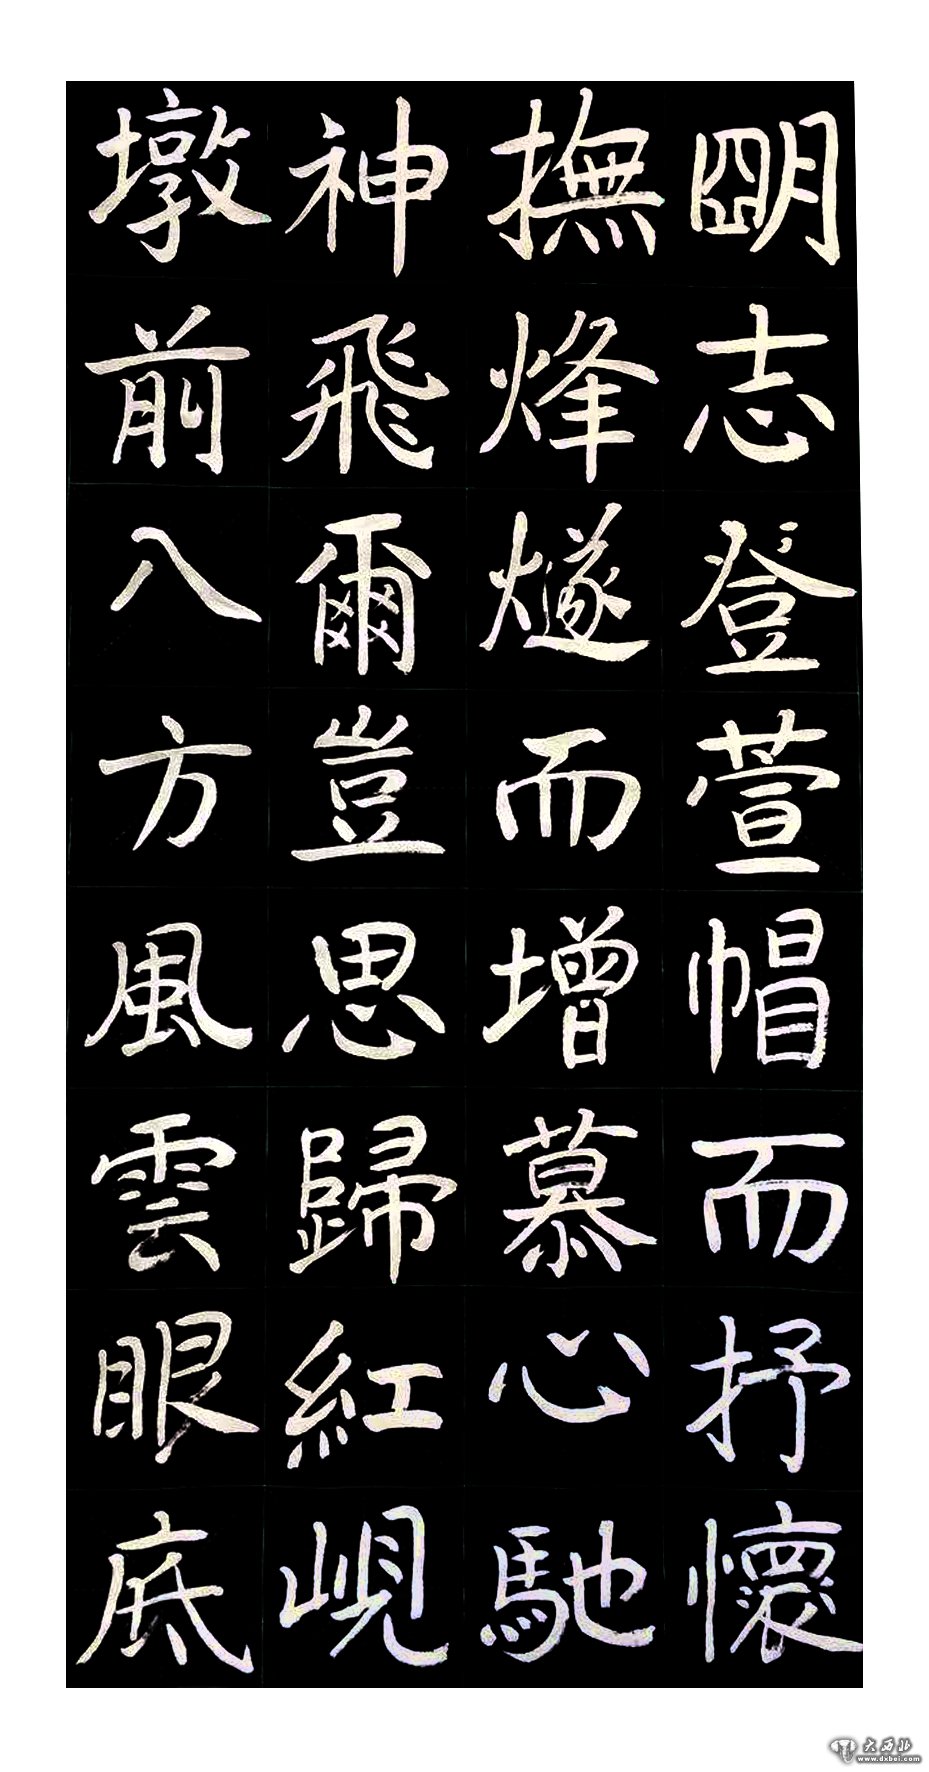 明志登萱帽而抒懷
撫烽燧而增慕心馳
神飛爾豈思歸紅峴
墩前八方風雲眼底
大西北
www.dxbei.com